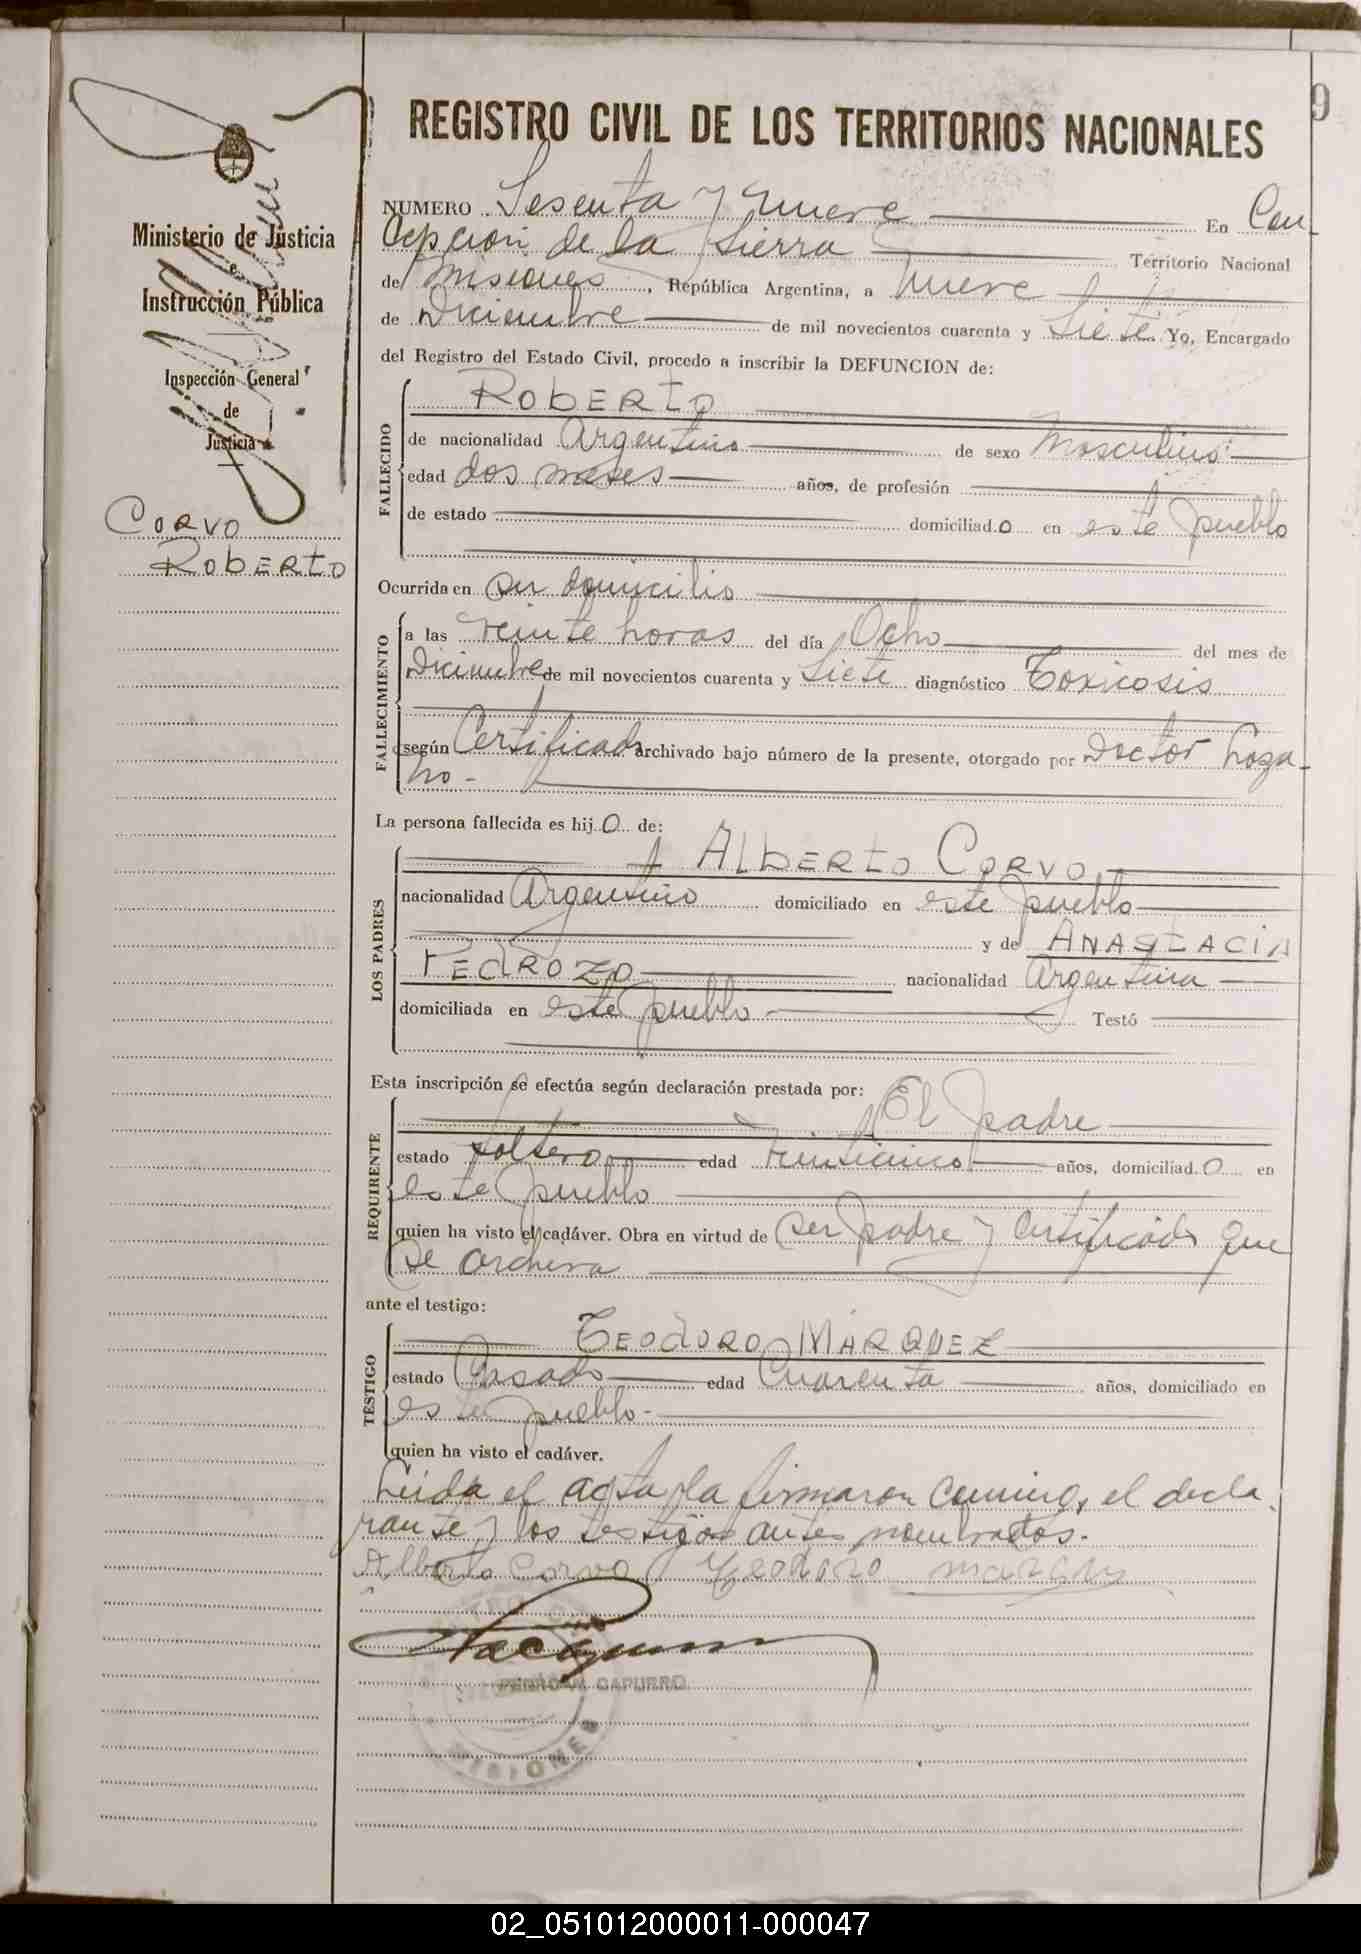 9
REGISTRO CIVIL DE LOS TERRITORIOS NACIONALES
Ministerio de Justicia
e
Instrucción Pública
Inspección General
de
Justicia
Corvo
Roberto
NUMERO Sesenta y nueve En Con-
cepcion de la Sierra Territorio Nacional
de Misiones, República Argentina, a nueve
de Diciembre de mil novecientos cuarenta y siete Yo, Encargado
del Registro del Estado Civil, procedo a inscribir la DEFUNCION de:
FALLECIDO
Roberto
de nacionalidad Argentino de sexo Masculino
edad dos meses años, de profesión
de estado domiciliado en este pueblo
Ocurrida en su domicilio
FALLECIMIENTO
a las veinte horas del día Ocho del mes de
Diciembre de mil novecientos cuarenta y siete diagnóstico Toxicosis
según Certificado archivado bajo número de la presente, otorgado por Doctor Loza-
no-
La persona fallecida es hijo de:
LOS PADRES
Alberto Corvo
nacionalidad Argentino domiciliado en este pueblo
y de Anastacia
Pedrozo nacionalidad Argentina
domiciliada en este pueblo Testó
Esta inscripción se efectúa según declaración prestada por: El padre
REQUIRENTE
estado soltero edad veinticinco años, domiciliado en
este pueblo
quien ha visto el cadáver. Obra en virtud de ser padre y certificado que
se archiva
ante el testigo:
TESTIGO
Teodoro Marquez
estado Casado edad Cuarenta años, domiciliado en
este pueblo-
quien ha visto el cadáver.
Leida el acta la firmaron conmigo, el decla-
rante y los testigos antes nombrados.
Alberto Corvo Teodoro
CAPURRO
MISIONES
02_051012000011-000047